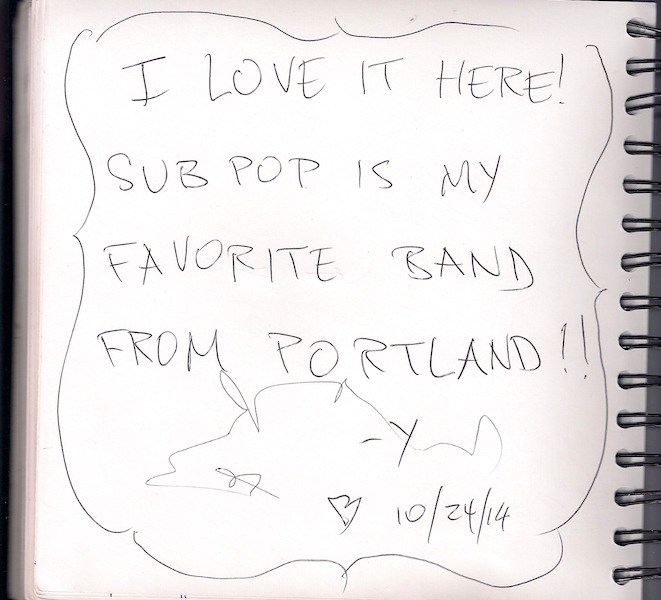 I LOVE IT HERE!
SUB POP IS MY
FAVORITE BAND
FROM PORTLAND!!
-Y
10/24/14